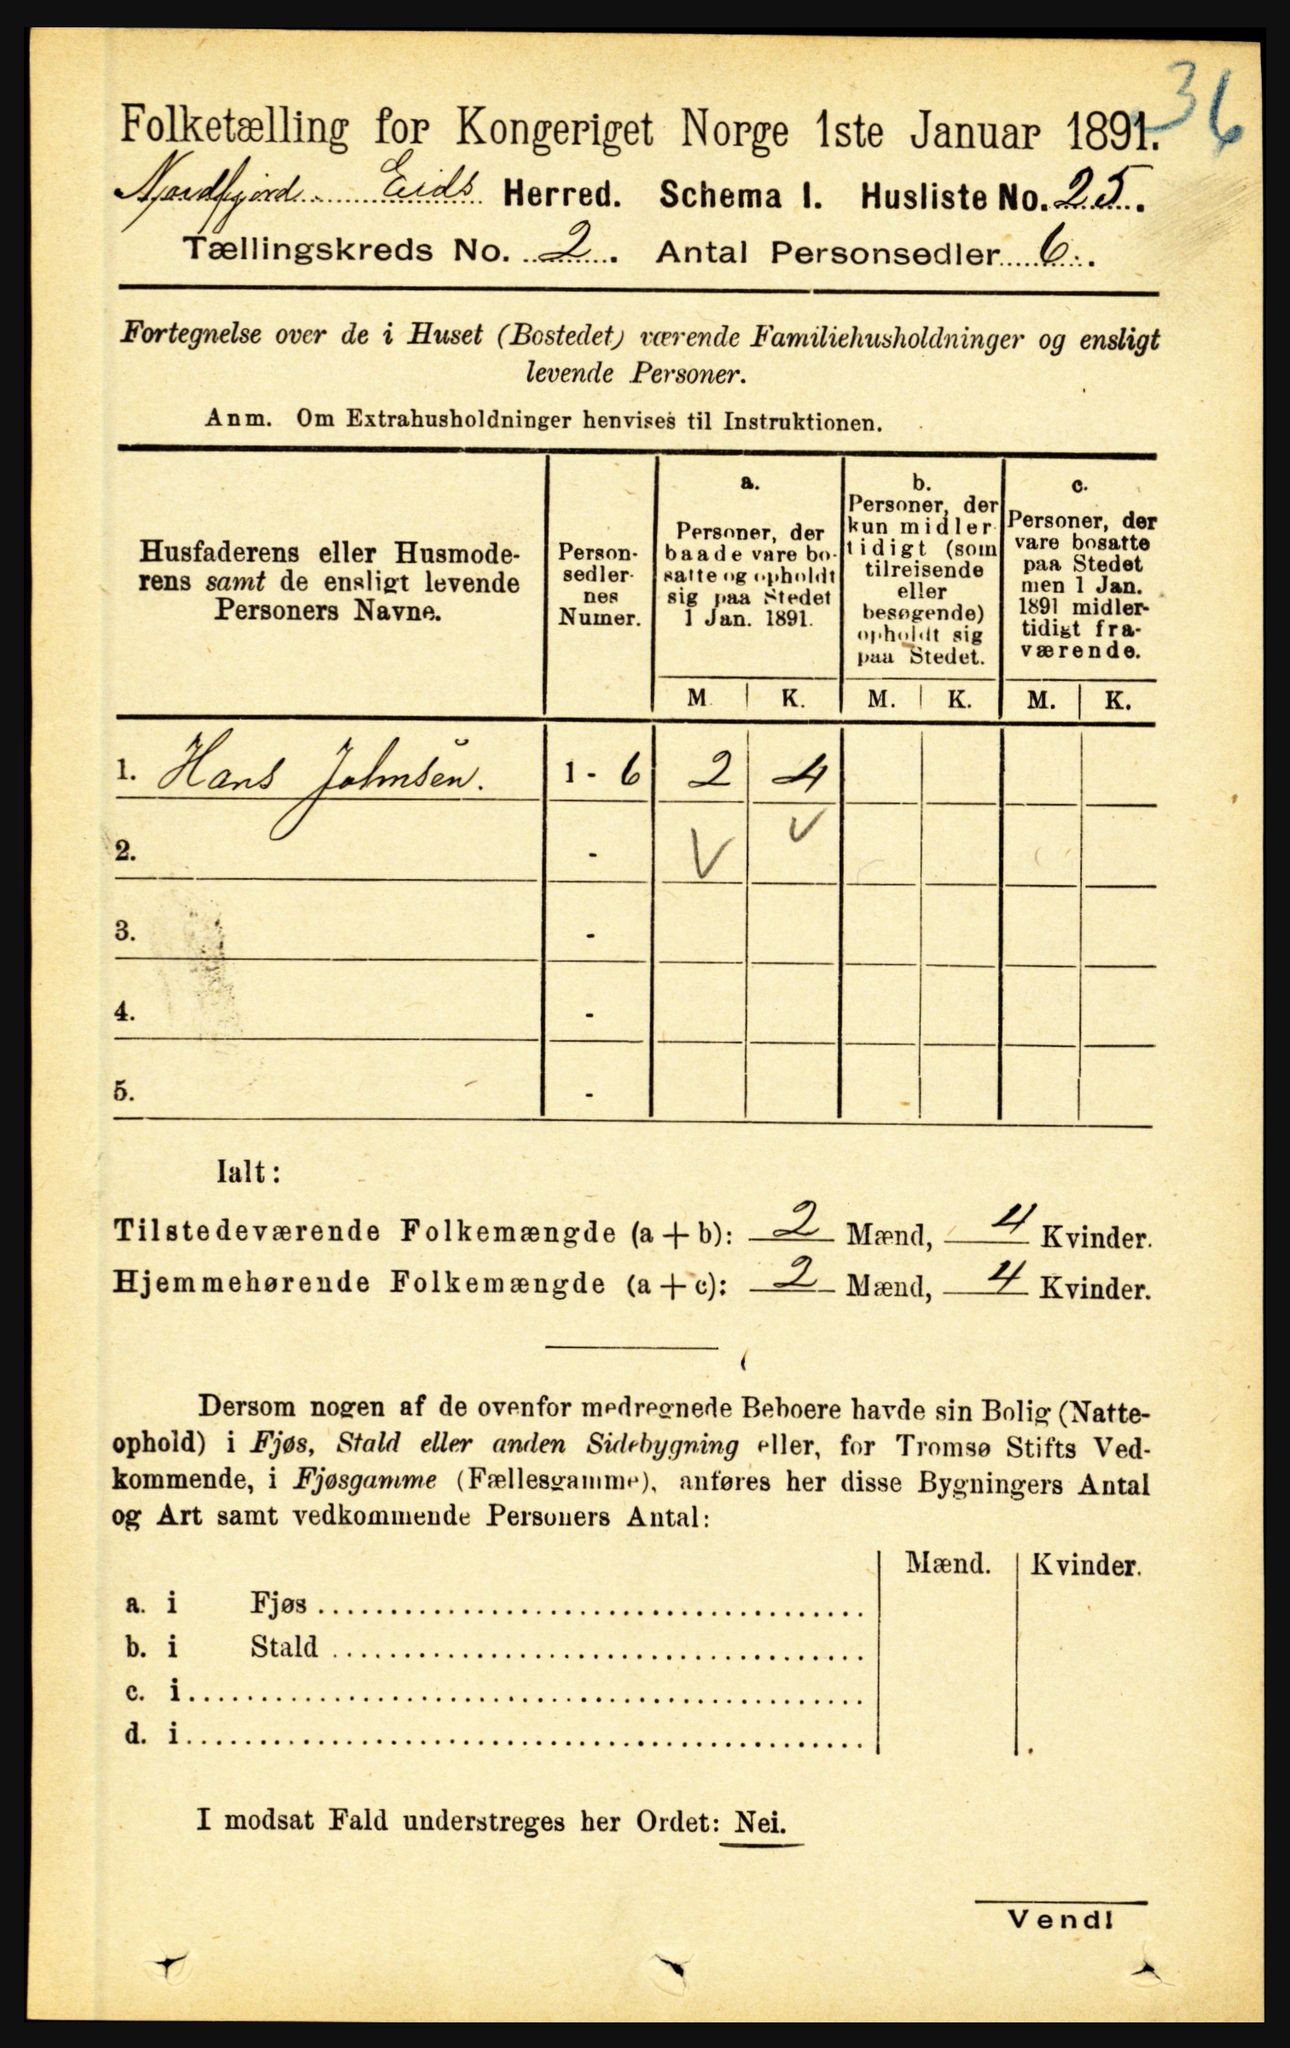 36
Folketælling for Kongeriget Norge 1ste Januar 1891.
Nordfjord Eids Herred. Schema 1. Husliste No. 25.
Tællingskreds No. 2. Antal Personsedler 6.
Fortegnelse over de i Huset (Bostedet) værende Familiehusholdninger og ensligt
levende Personer.
Anm. Om Extrahusholdninger henvises til Instruktionen.
Husfaderens eller Husmode-
rens samt de ensligt levende
Personers Navne.
Person-
sedler-
nes
Numer.
a.
Personer, der
baade vare bo-
satte og opholdt
sig paa Stedet
1 Jan. 1891.
b.
Personer, der
kun midler-
tidigt (som
tilreisende
eller
besøgende)
opholdt sig
paa Stedet.
c.
Personer, der
vare bosatte
paa Stedet
men 1 Jan.
1891 midler-
tidigt fra-
værende.
M. K. M. K. M. K.
1. Hans Johnsen. 1 - 6 2 4
2. -
3. -
4. -
5. -
Ialt:
Tilstedeværende Folkemængde (a + b): 2 Mænd, 4 Kvinder.
Hjemmehørende Folkemængde (a + c): 2 Mænd, 4 Kvinder.
Dersom nogen af de ovenfor medregnede Beboere havde sin Bolig (Natte-
ophold) i Fjøs, Stald eller anden Sidebygning eller, for Tromsø Stifts Ved-
kommende, i Fjøsgamme (Fællesgamme), anføres her disse Bygningers Antal
og Art samt vedkommende Personers Antal:
Mænd. Kvinder.
a. i Fjøs
b. i Stald
c. i
d. i
I modsat Fald understreges her Ordet: Nei.
Vend!